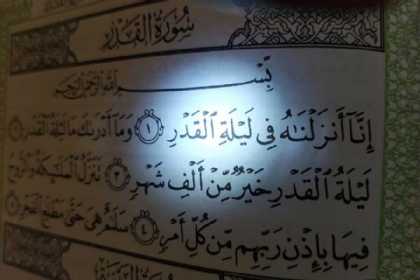 سُورَةُ الْقَدْرِ
بِسْمِ اللَّهِ الرَّحْمَٰنِ الرَّحِيمِ
إِنَّآ أَنزَلْنَٰهُ فِى لَيْلَةِ ٱلْقَدْرِ ١ وَمَآ أَدْرَىٰكَ مَا لَيْلَةُ ٱلْقَدْرِ ٢
لَيْلَةُ ٱلْقَدْرِ خَيْرٌ مِّنْ أَلْفِ شَهْرٍ ٣ تَنَزَّلُ ٱلْمَلَٰٓئِكَةُ وَٱلرُّوحُ
فِيهَا بِإِذْنِ رَبِّهِم مِّن كُلِّ أَمْرٍ ٤ سَلَٰمٌ هِىَ حَتَّىٰ مَطْلَعِ ٱلْفَجْرِ ٥